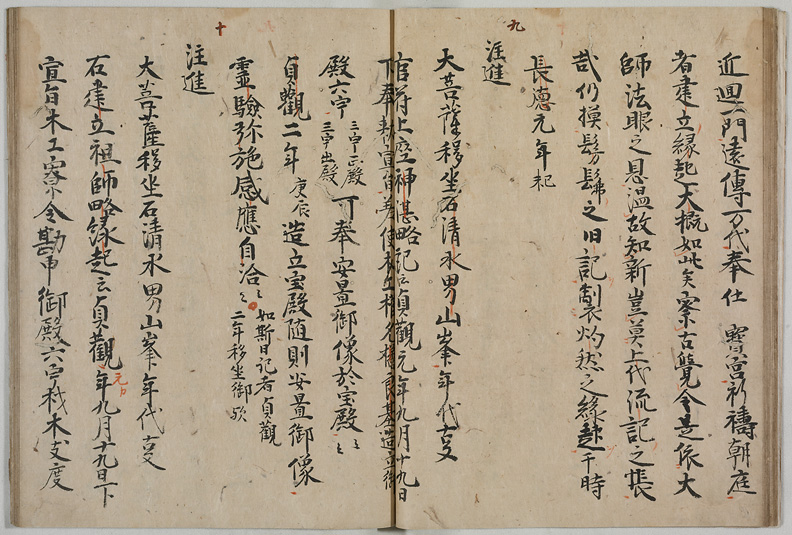 九
近囬一門遠傳万代奉仕 寳宮祈禱朝庭
者建立縁起大概如此矣寮古覺今是依大
師法眼之恩温故知新豈莫上代流記之張
哉仍摸髣髴之旧記製灼然之縁起于時
長德元年記
注進
大菩薩移坐石清水男山峯年代支
官符上座神湛略記云貞觀元年九月十九日
下奉 勅宣旨
殿六宇 三宇正殿 三宇出殿 可奉安置御像於宝殿云々
十
貞觀二年 庚辰 造立宝殿随則安置御像
靈驗弥施感應自洽云々 如斯日記者貞觀二年移坐御歟
注進
大菩薩移坐石清水男山峯年代支
右建立祖師略縁起云貞觀元年九月十九日下
宣旨木工寮令勘申 御殿六宇材木支度